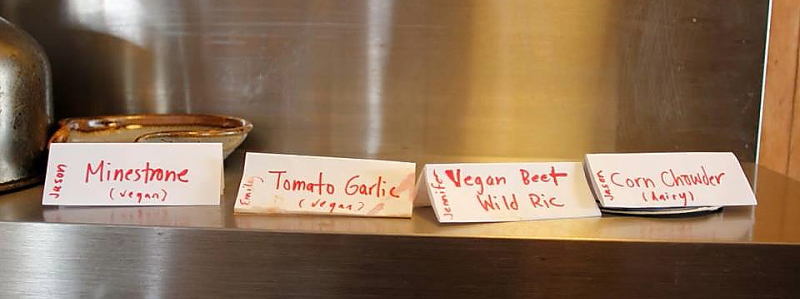 Jason
Minestrone
(vegan)
Emily
Tomato Garlic
(vegan)
Jennifer
Vegan Beet
Wild Ric
Jason
Corn Chowder
(dairy)